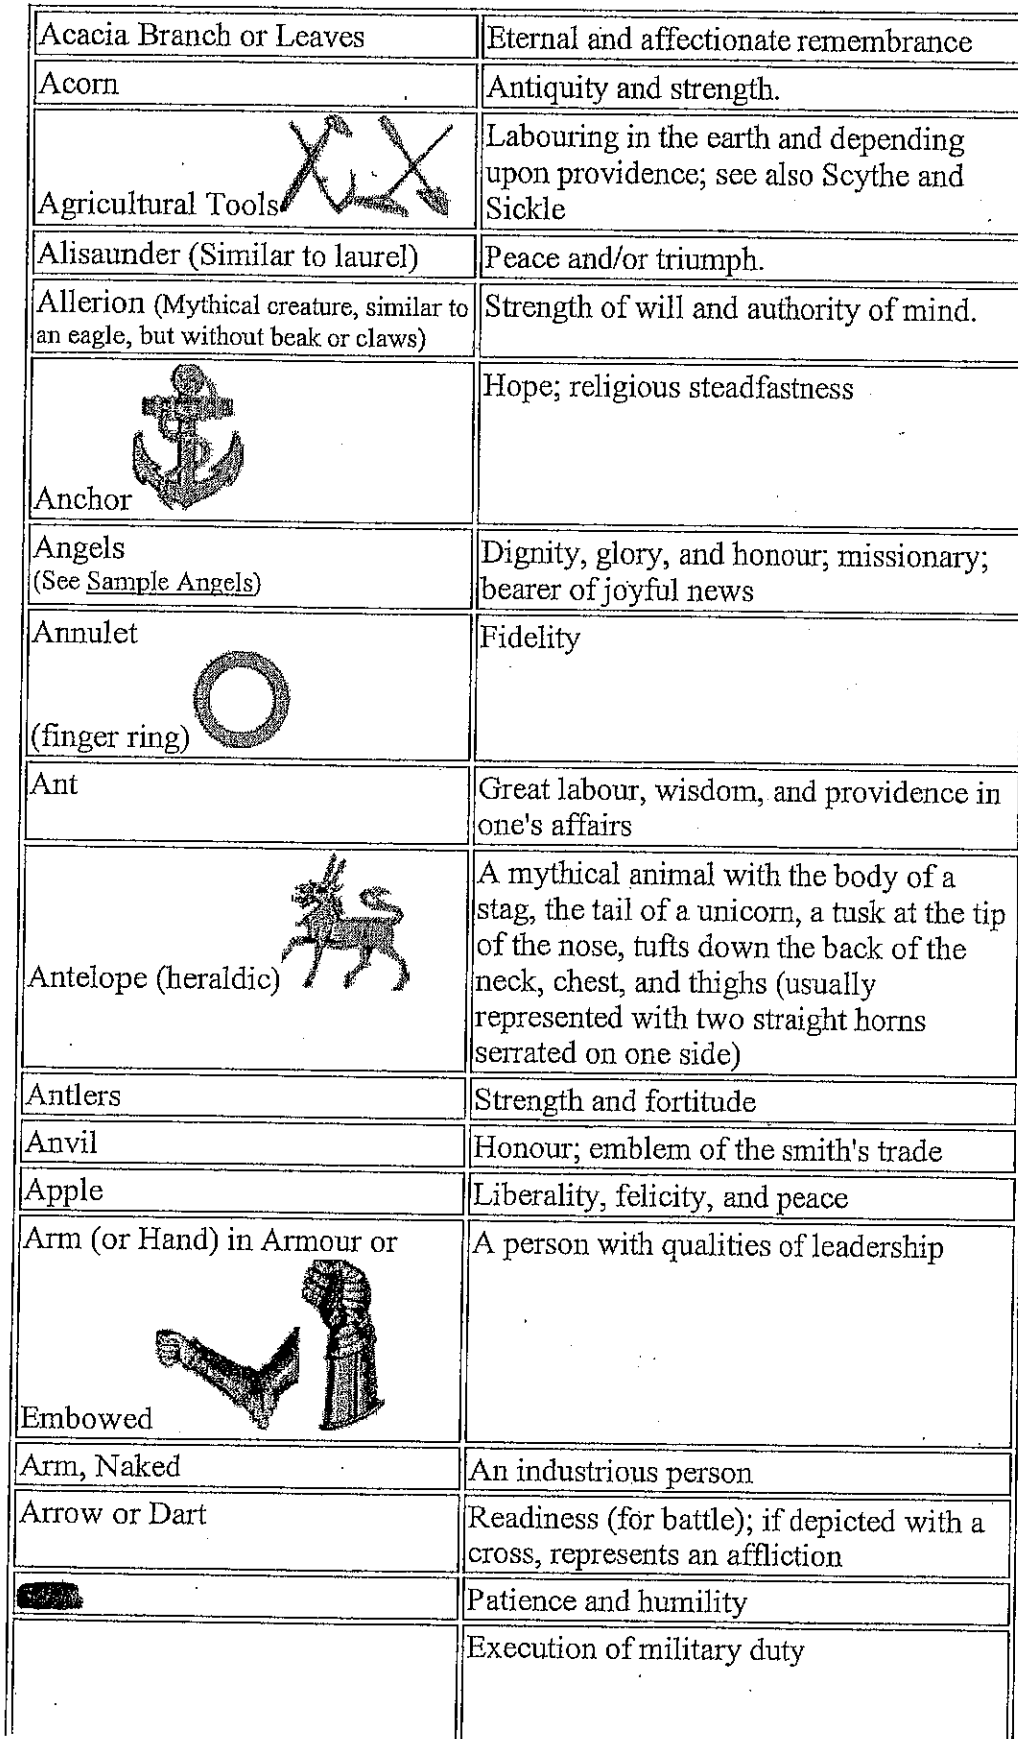 Acacia Branch or Leaves
Eternal and affectionate remembrance
Acorn
Antiquity and strength.
Agricultural Tools
Labouring in the earth and depending
upon providence; see also Scythe and
Sickle
Alisaunder (Similar to laurel)
Peace and/or triumph.
Allerion (Mythical creature, similar to
an eagle, but without beak or claws)
Strength of will and authority of mind.
Anchor
Hope; religious steadfastness
Angels
(See Sample Angels)
Dignity, glory, and honour; missionary;
bearer of joyful news
Annulet
(finger ring)
Fidelity
Ant
Great labour, wisdom, and providence in
one's affairs
Antelope (heraldic)
A mythical animal with the body of a
stag, the tail of a unicorn, a tusk at the tip
of the nose, tufts down the back of the
neck, chest, and thighs (usually
represented with two straight horns
serrated on one side)
Antlers
Strength and fortitude
Anvil
Honour; emblem of the smith's trade
Apple
Liberality, felicity, and peace
Arm (or Hand) in Armour or
Embowed
A person with qualities of leadership
Arm, Naked
An industrious person
Arrow or Dart
Readiness (for battle); if depicted with a
cross, represents an affliction
Patience and humility
Execution of military duty